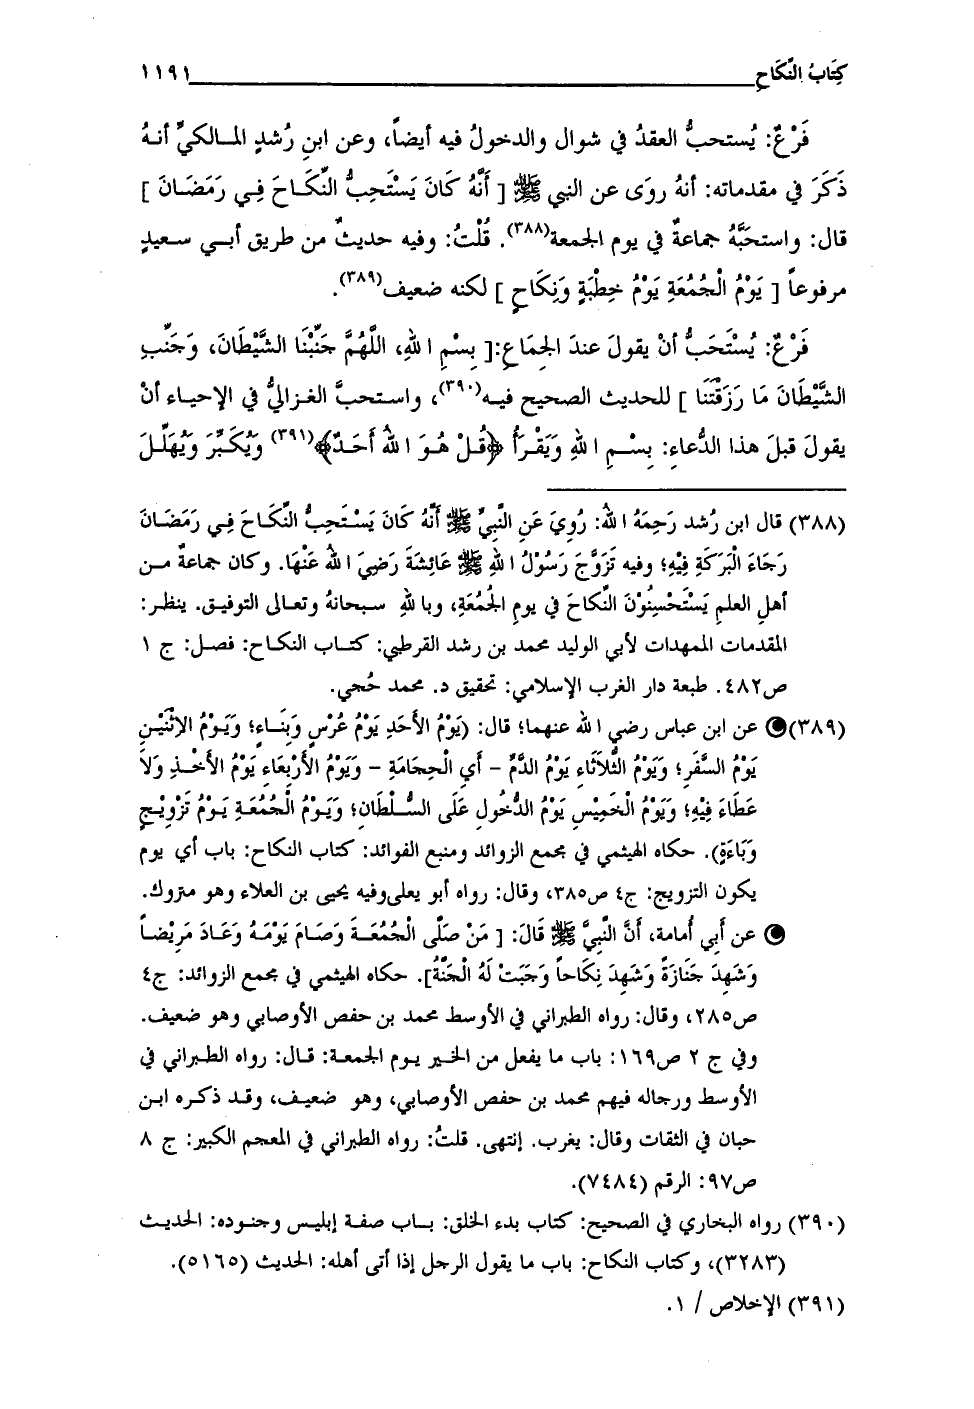 كِتَابُ النِّكَاحِ ١١٩١
فَرْعٌ: يُستحبُّ العقدُ في شوال والدخولُ فيه أيضاً، وعن ابنِ رُشدٍ المـالكيِّ أنـهُ
ذَكَرَ في مقدماته: أنهُ روَى عن النبي ﷺ [ أَنَّهُ كَانَ يَسْتَحِبُّ النِّكَـاحَ فِـي رَمَضَـانَ ]
قال: واستحَبَّهُ جماعةٌ في يوم الجمعة(٣٨٨). قُلْتُ: وفيه حديثٌ من طريق أبـي سعيدٍ
مرفوعاً [ يَوْمُ الْجُمُعَةِ يَوْمُ خِطْبَةٍ وَنِكَاحٍ ] لكنه ضعيف(٣٨٩).
فَرْعٌ: يُسْتَحَبُّ أنْ يقولَ عندَ الجِمَاعِ:[ بِسْمِ اللهِ، اللَّهُمَّ جَنِّبْنَا الشَّيْطَانَ، وَجَنِّبِ
الشَّيْطَانَ مَا رَزَقْتَنَا ] للحديث الصحيح فيه(٣٩٠)، واستحبَّ الغـزاليُّ في الإحياء أنْ
يقولَ قبلَ هذا الدُّعاءِ: بِسْـمِ اللهِ وَيَقْـرَأُ ﴿قُـلْ هُـوَ اللهُ أَحَـدٌ﴾(٣٩١) وَيُكَبِّرَ وَيُهَلِّـلَ
(٣٨٨) قال ابن رُشد رَحِمَهُ اللهُ: رُوِيَ عَنِ النَّبِيِّ ﷺ أَنَّهُ كَانَ يَسْـتَحِبُّ النِّكَـاحَ فِـي رَمَضَـانَ
رَجَاءَ الْبَرَكَةِ فِيْهِ؛ وفيه تَزَوَّجَ رَسُوْلُ اللهِ ﷺ عَائِشَةَ رَضِيَ اللهُ عَنْهَا. وكان جماعةٌ مـن
أهلِ العلمِ يَسْتَحْسِنُوْنَ النِّكَاحَ في يومِ الجُمُعَةِ، وباللهِ سبحانهُ وتعالى التوفيق. ينظـر:
المقدمات الممهدات لأبي الوليد محمد بن رشد القرطبي: كتـاب النكـاح: فصـل: ج ١
ص٤٨٢. طبعة دار الغرب الإسلامي: تحقيق د. محمد حُجي.
(٣٨٩) عن ابن عباس رضي الله عنهما؛ قال: (يَوْمُ الأَحَدِ يَوْمُ عُرْسٍ وَبِنَـاءٍ؛ وَيَـوْمُ الإِثْنَيْـنِ
يَوْمُ السَّفَرِ؛ وَيَوْمُ الثُّلاَثَاءِ يَوْمُ الدَّمِّ - أي الْحِجَامَةِ - وَيَوْمُ الأَرْبِعَاءِ يَوْمُ الأَخْـذِ وَلاَ
عَطَاءَ فِيْهِ؛ وَيَوْمُ الْخَمِيْسِ يَوْمُ الدُّخُولِ عَلَى السُّـلْطَانِ؛ وَيَـوْمُ الْجُمُعَـةِ يَـوْمُ تَزْوِيْـجٍ
وَبَاءَةٍ). حكاه الهيثمي في مجمع الزوائد ومنبع الفوائد: كتاب النكاح: باب أي يوم
يكون التزويج: ج٤ ص٣٨٥، وقال: رواه أبو يعلى وفيه يحيى بن العلاء وهو متروك.
عن أَبي أُمامة، أَنَّ النَّبِيَّ ﷺ قَالَ: [ مَنْ صَلَّى الْجُمُعَـةَ وَصَـامَ يَوْمَـهُ وَعَـادَ مَرِيْضـاً
وَشَهِدَ جَنَازَةً وَشَهِدَ نِكَاحاً وَجَبَتْ لَهُ الْجَنَّةُ]. حكاه الهيثمي في مجمع الزوائد: ج٤
ص٢٨٥، وقال: رواه الطبراني في الأوسط محمد بن حفص الأوصابي وهو ضعيف.
وفي ج ٢ ص١٦٩: باب ما يفعل من الخير يـوم الجمعـة: قـال: رواه الطـبراني في
الأوسط ورجاله فيهم محمد بن حفص الأوصابي، وهو ضعيـف، وقـد ذكـره ابـن
حبان في الثقات وقال: يغرب. إنتهى. قلتُ: رواه الطبراني في المعجم الكبير: ج ٨
ص٩٧: الرقم (٧٤٨٤).
(٣٩٠) رواه البخاري في الصحيح: كتاب بدء الخلق: بـاب صفـة إبليـس وجنـوده: الحديـث
(٣٢٨٣)، وكتاب النكاح: باب ما يقول الرجل إذا أتى أهله: الحديث (٥١٦٥).
(٣٩١) الإخلاص / ١.